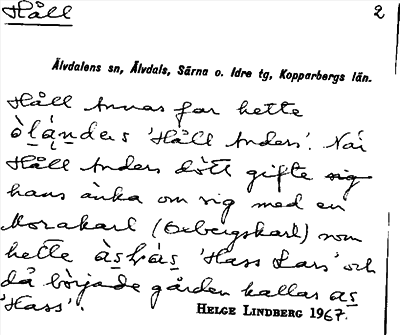 Håll 2
Älvdalens sn, Älvdals, Särna o. Idre tg, Kopparbergs län.
Håll Annas far hette
òlá̱nders 'Håll Anders'. När
Håll Anders dött gifte sig
hans änka om sig med en
Morakarl (Oxbergskarl) som
hette 'Hass Lars' och
då började gården kallas as
'Hass'.
HELGE LINDBERG 1967.